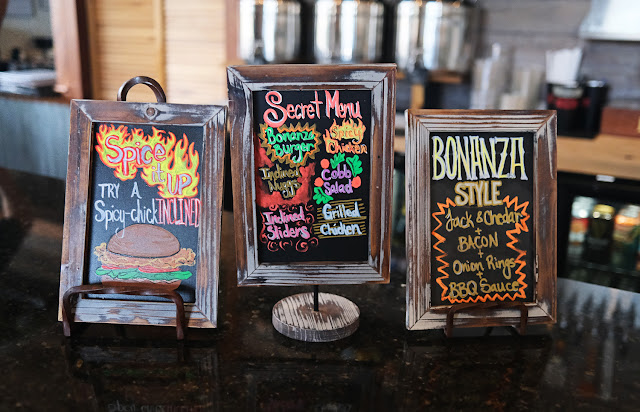 Spice
it
UP
TRY A
Spicy-chickINCLINED
Secret Menu
Bonanza
Burger
Spicy
Chicken
Inclined
Nuggs
Cobb
Salad
Inclined
Sliders
Grilled
Chicken
BONANZA
STYLE
Jack & Chedar
+
BACON
+
Onion Rings
+
BBQ Sauce